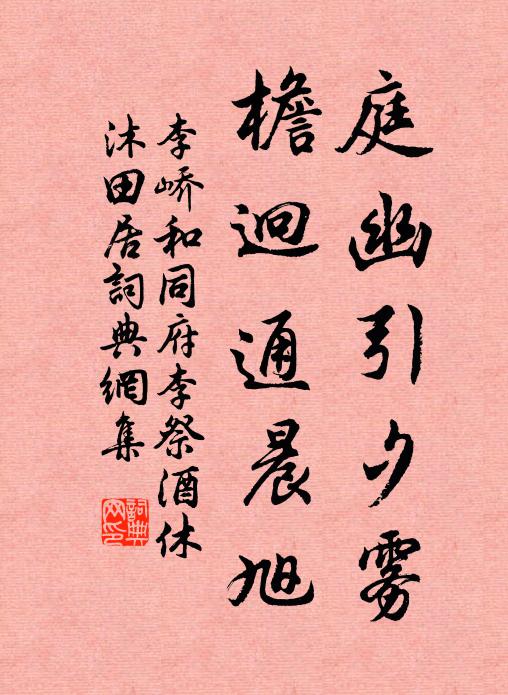 庭幽引夕雾
檐迥通晨旭
李峤和同府李祭酒休
沐田居詞典網集
詞典网印